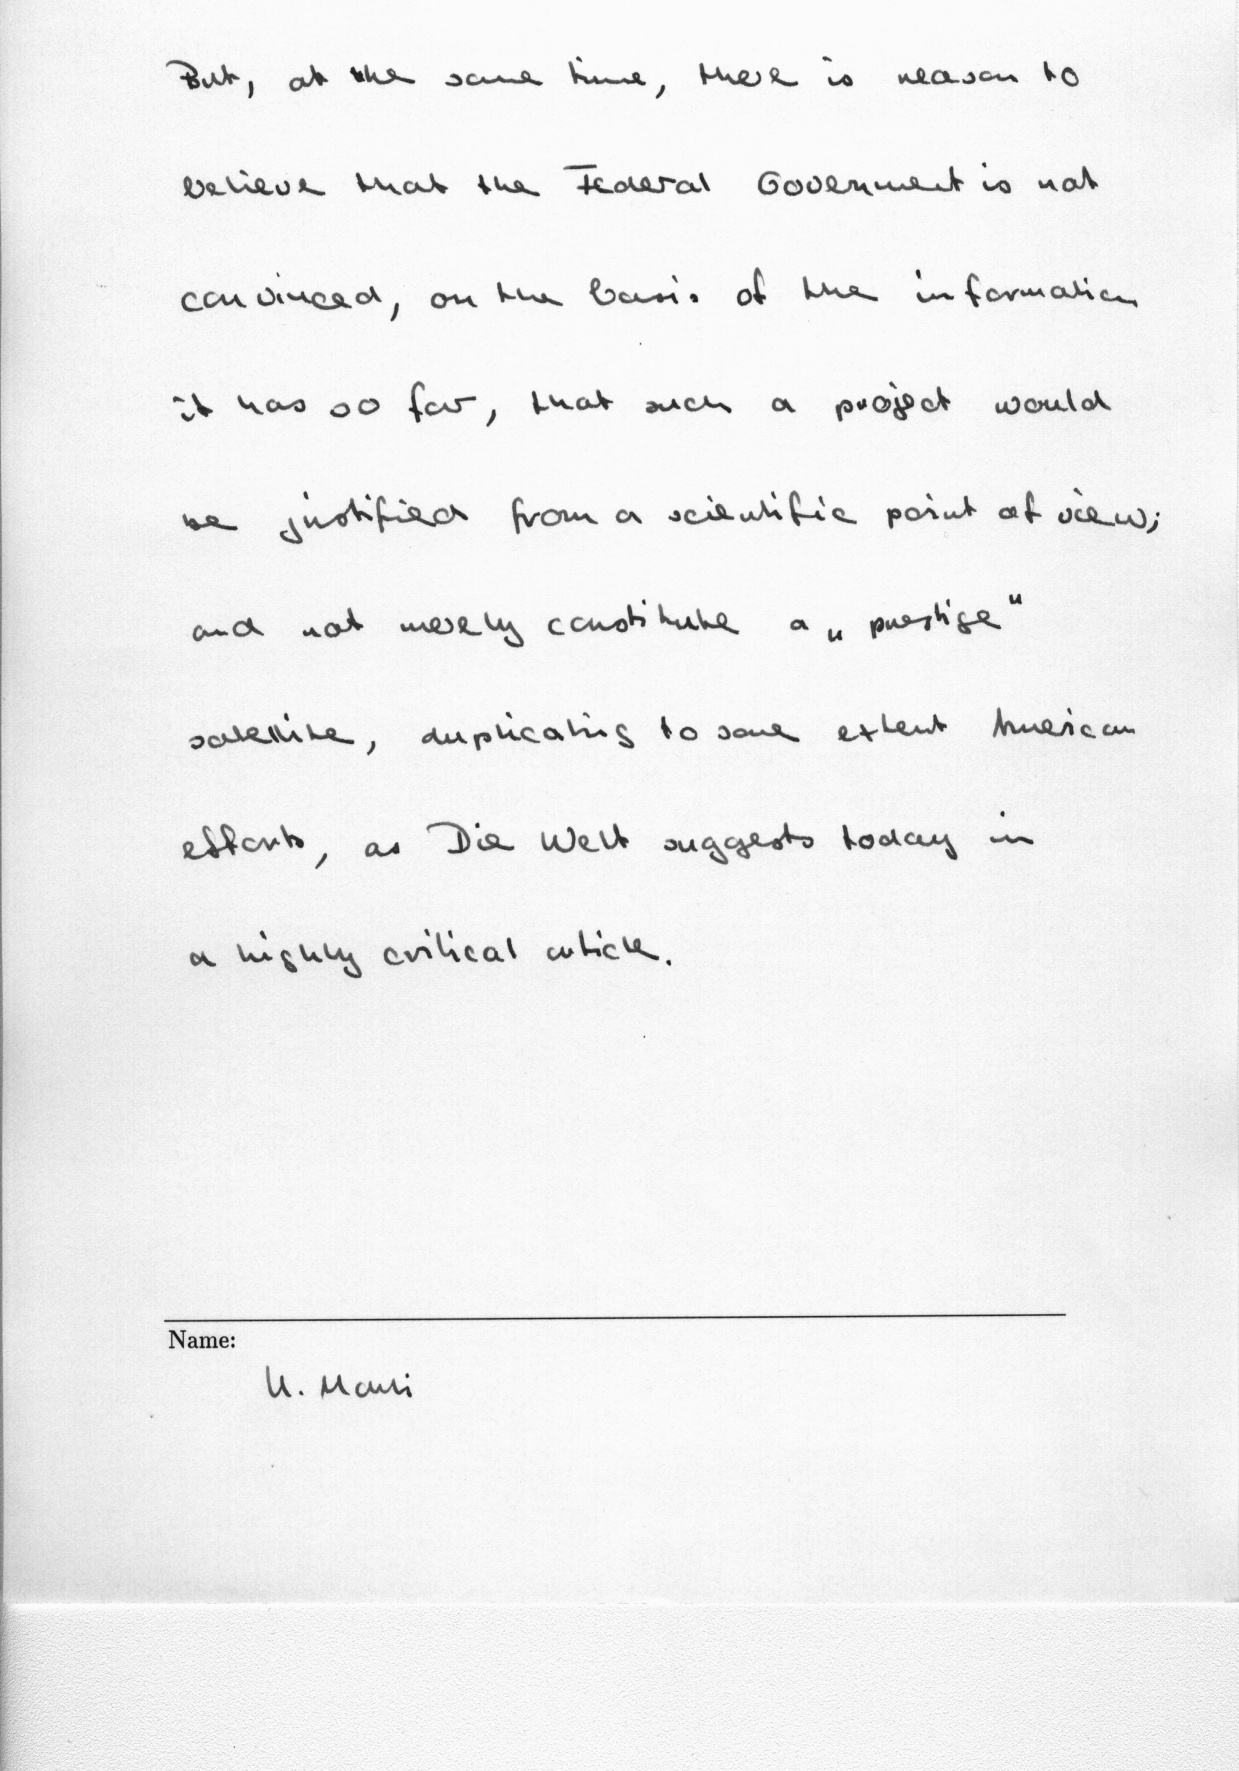 But, at the same time, there is reason to
believe that the Federal Government is not
convinced, on the basis of the information
it has so far, that such a project would
be justified from a scientific point of view;
and not merely constitute a „prestige“
satellite, duplicating to some extent American
efforts, as Die Welt suggests today in
a highly critical article.
Name: